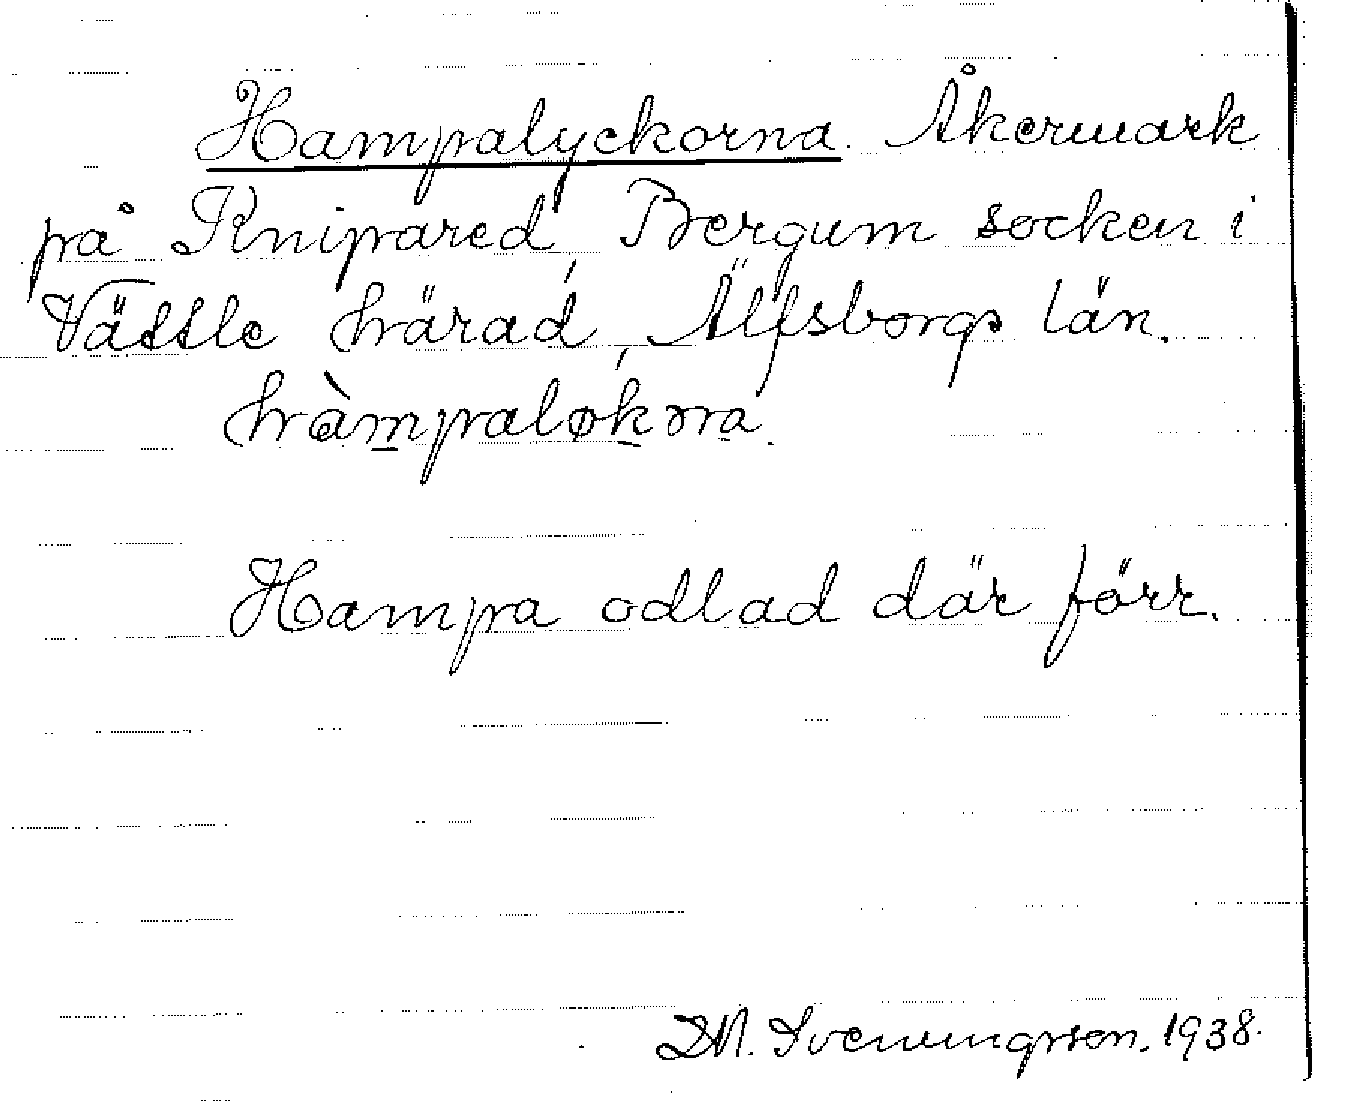 Hampalyckorna. Åkermark
på Knipared, Bergum socken i
Vättle härad, Älfsborgs län.
hàmpaløkɔra.
Hampa odlad där förr.
D.N. Svenningsson. 1938.